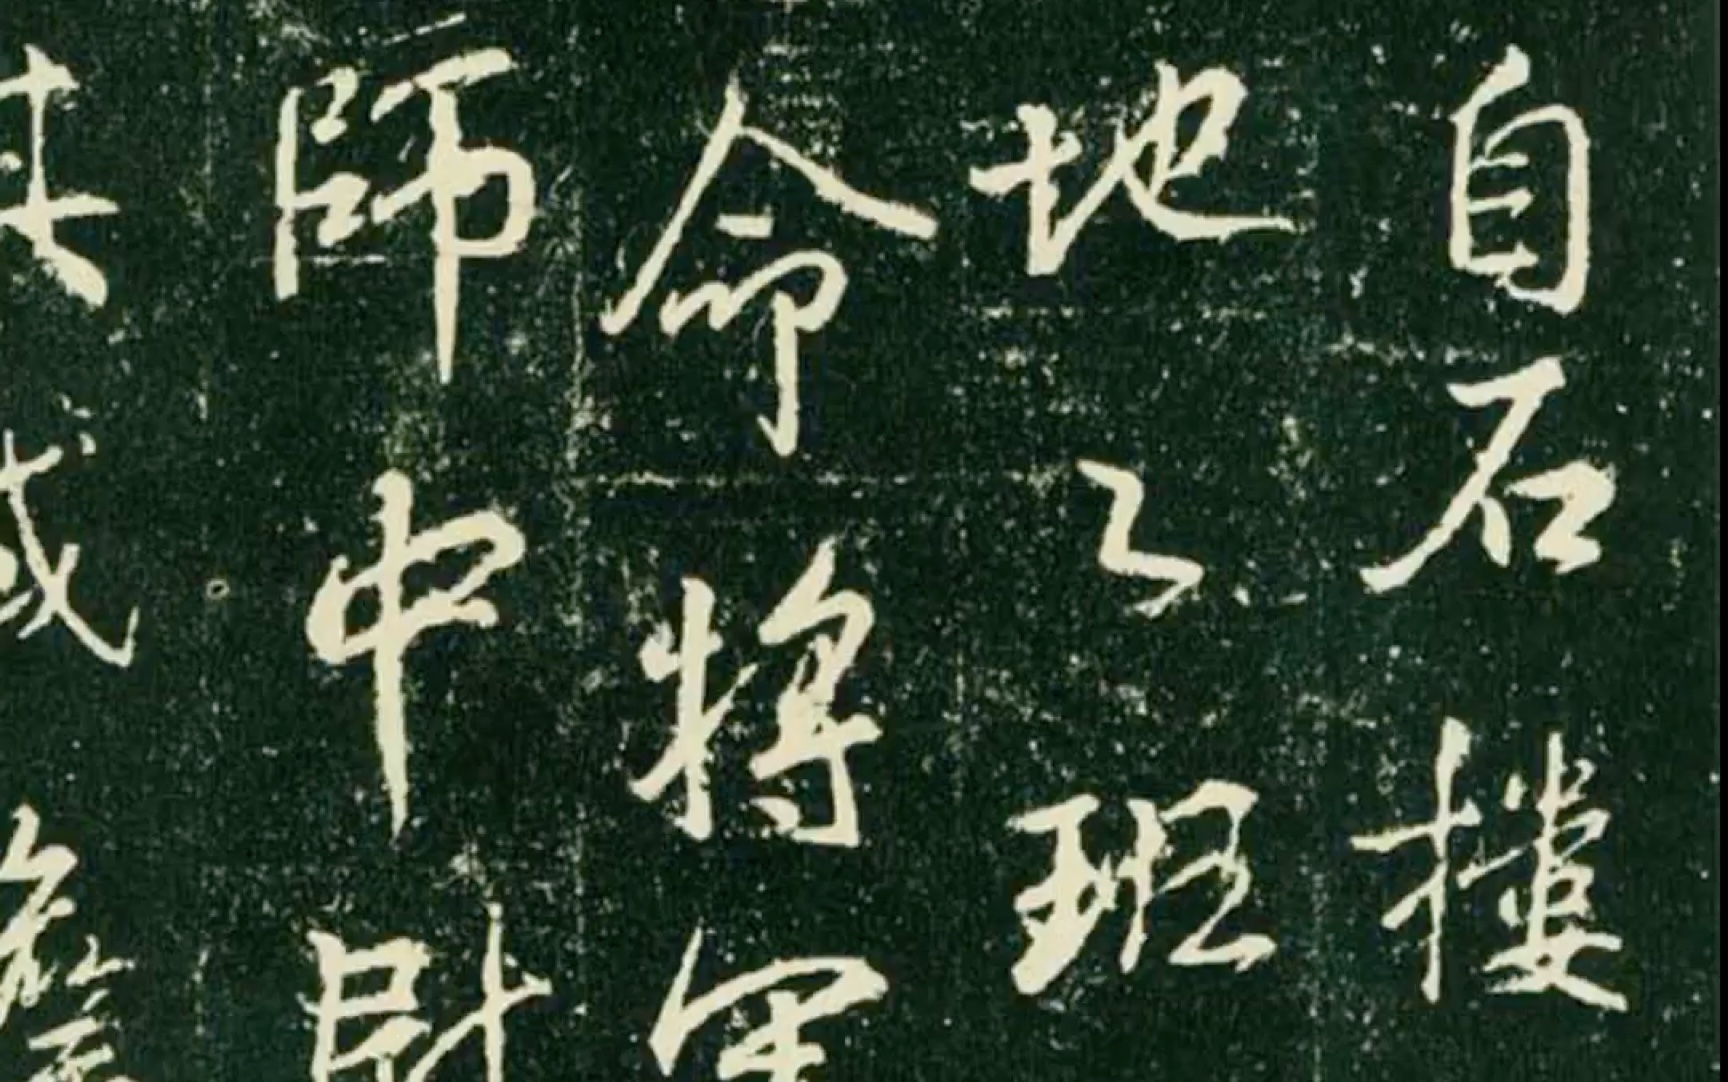 自石樓
地之班
命將軍
師中
其或